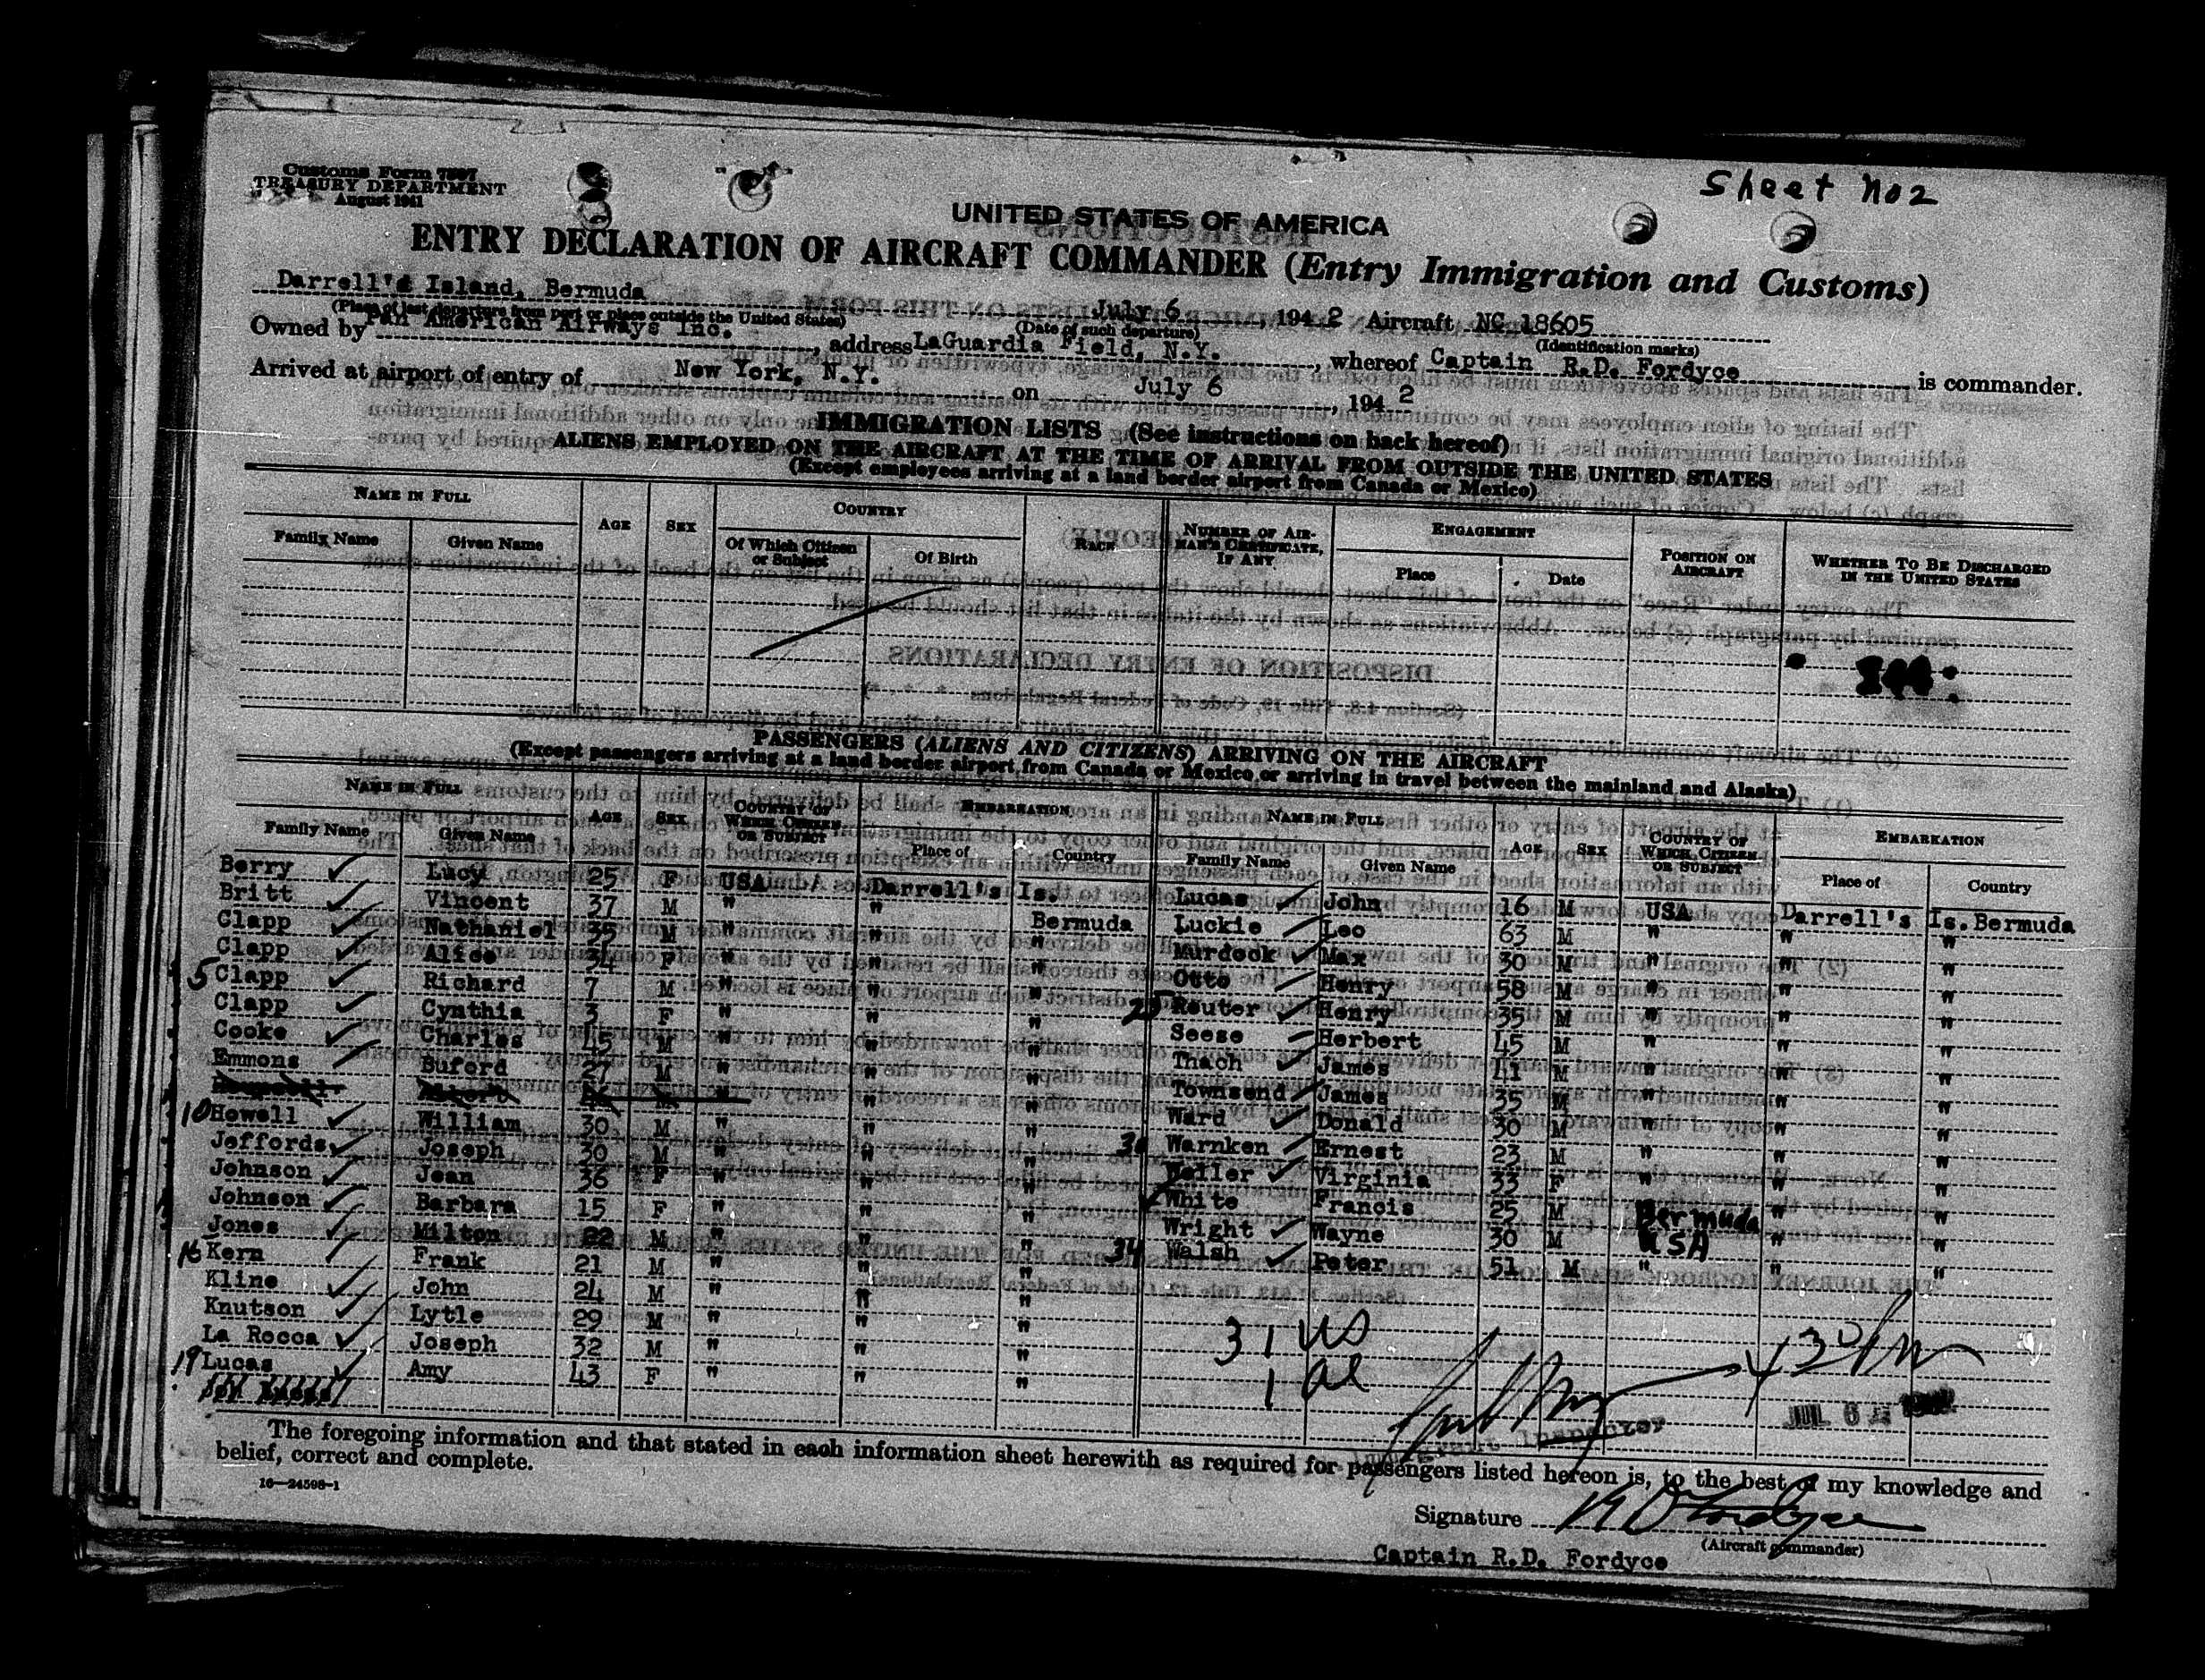 Sheet No 2
Customs Form 7507
TREASURY DEPARTMENT
August 1941
UNITED STATES OF AMERICA
ENTRY DECLARATION OF AIRCRAFT COMMANDER (Entry Immigration and Customs)
Darrell's Island, Bermuda July 6, 1942 Aircraft NC 18605
(Place of last departure from port or place outside the United States) (Date of such departure) (Identification marks)
Owned by Pan American Airways Inc., address LaGuardia Field, N.Y., whereof Captain R.D. Fordyce is commander.
Arrived at airport of entry of New York, N.Y. on July 6, 1942
IMMIGRATION LISTS (See instructions on back hereof)
ALIENS EMPLOYED ON THE AIRCRAFT AT THE TIME OF ARRIVAL FROM OUTSIDE THE UNITED STATES
(Except employees arriving at a land border airport from Canada or Mexico)
NAME IN FULL AGE SEX COUNTRY RACE NUMBER OF AIRMAN'S CERTIFICATE, IF ANY ENGAGEMENT POSITION ON AIRCRAFT WHETHER TO BE DISCHARGED IN THE UNITED STATES
Family Name Given Name Of Which Citizen or Subject Of Birth Place Date
PASSENGERS (ALIENS AND CITIZENS) ARRIVING ON THE AIRCRAFT
(Except passengers arriving at a land border airport from Canada or Mexico or arriving in travel between the mainland and Alaska)
NAME IN FULL AGE SEX COUNTRY OF WHICH CITIZEN OR SUBJECT EMBARKATION
Family Name Given Name Place of Country
Berry Lucy 25 F USA Darrell's Is.
Britt Vincent 37 M " " Bermuda
Clapp Nathaniel 35 M " " "
Clapp Alice 34 F " " "
5 Clapp Richard 7 M " " "
Clapp Cynthia 3 F " " "
Cooke Charles 45 M " " "
Emmons Buford 27 M " " "
M " " "
10 Howell William 30 M " " "
Jeffords Joseph 30 M " " "
Johnson Jean 36 F " " "
Johnson Barbara 15 F " " "
Jones Milton 22 M " " "
15 Kern Frank 21 M " " "
Kline John 24 M " " "
Knutson Lytle 29 M " " "
La Rocca Joseph 32 M " " "
19 Lucas Amy 43 F " " "
NAME IN FULL AGE SEX COUNTRY OF WHICH CITIZEN OR SUBJECT EMBARKATION
Family Name Given Name Place of Country
Lucas John 16 M USA Darrell's Is. Bermuda
Luckie Leo 63 M " " "
Murdock Max 30 M " " "
Otto Henry 58 M " " "
25 Reuter Henry 35 M " " "
Seese Herbert 45 M " " "
Thach James 41 M " " "
Townsend James 35 M " " "
Ward Donald 30 M " " "
30 Warnken Ernest 23 M " " "
Weiler Virginia 33 F " " "
White Francis 25 M Bermuda " "
Wright Wayne 30 M USA " "
34 Walsh Peter 51 M " " "
31 US
1 al
JUL 6 1942
Inspector
The foregoing information and that stated in each information sheet herewith as required for passengers listed hereon is, to the best of my knowledge and
belief, correct and complete.
16—24598-1
Signature R D Fordyce
(Aircraft commander)
Captain R.D. Fordyce